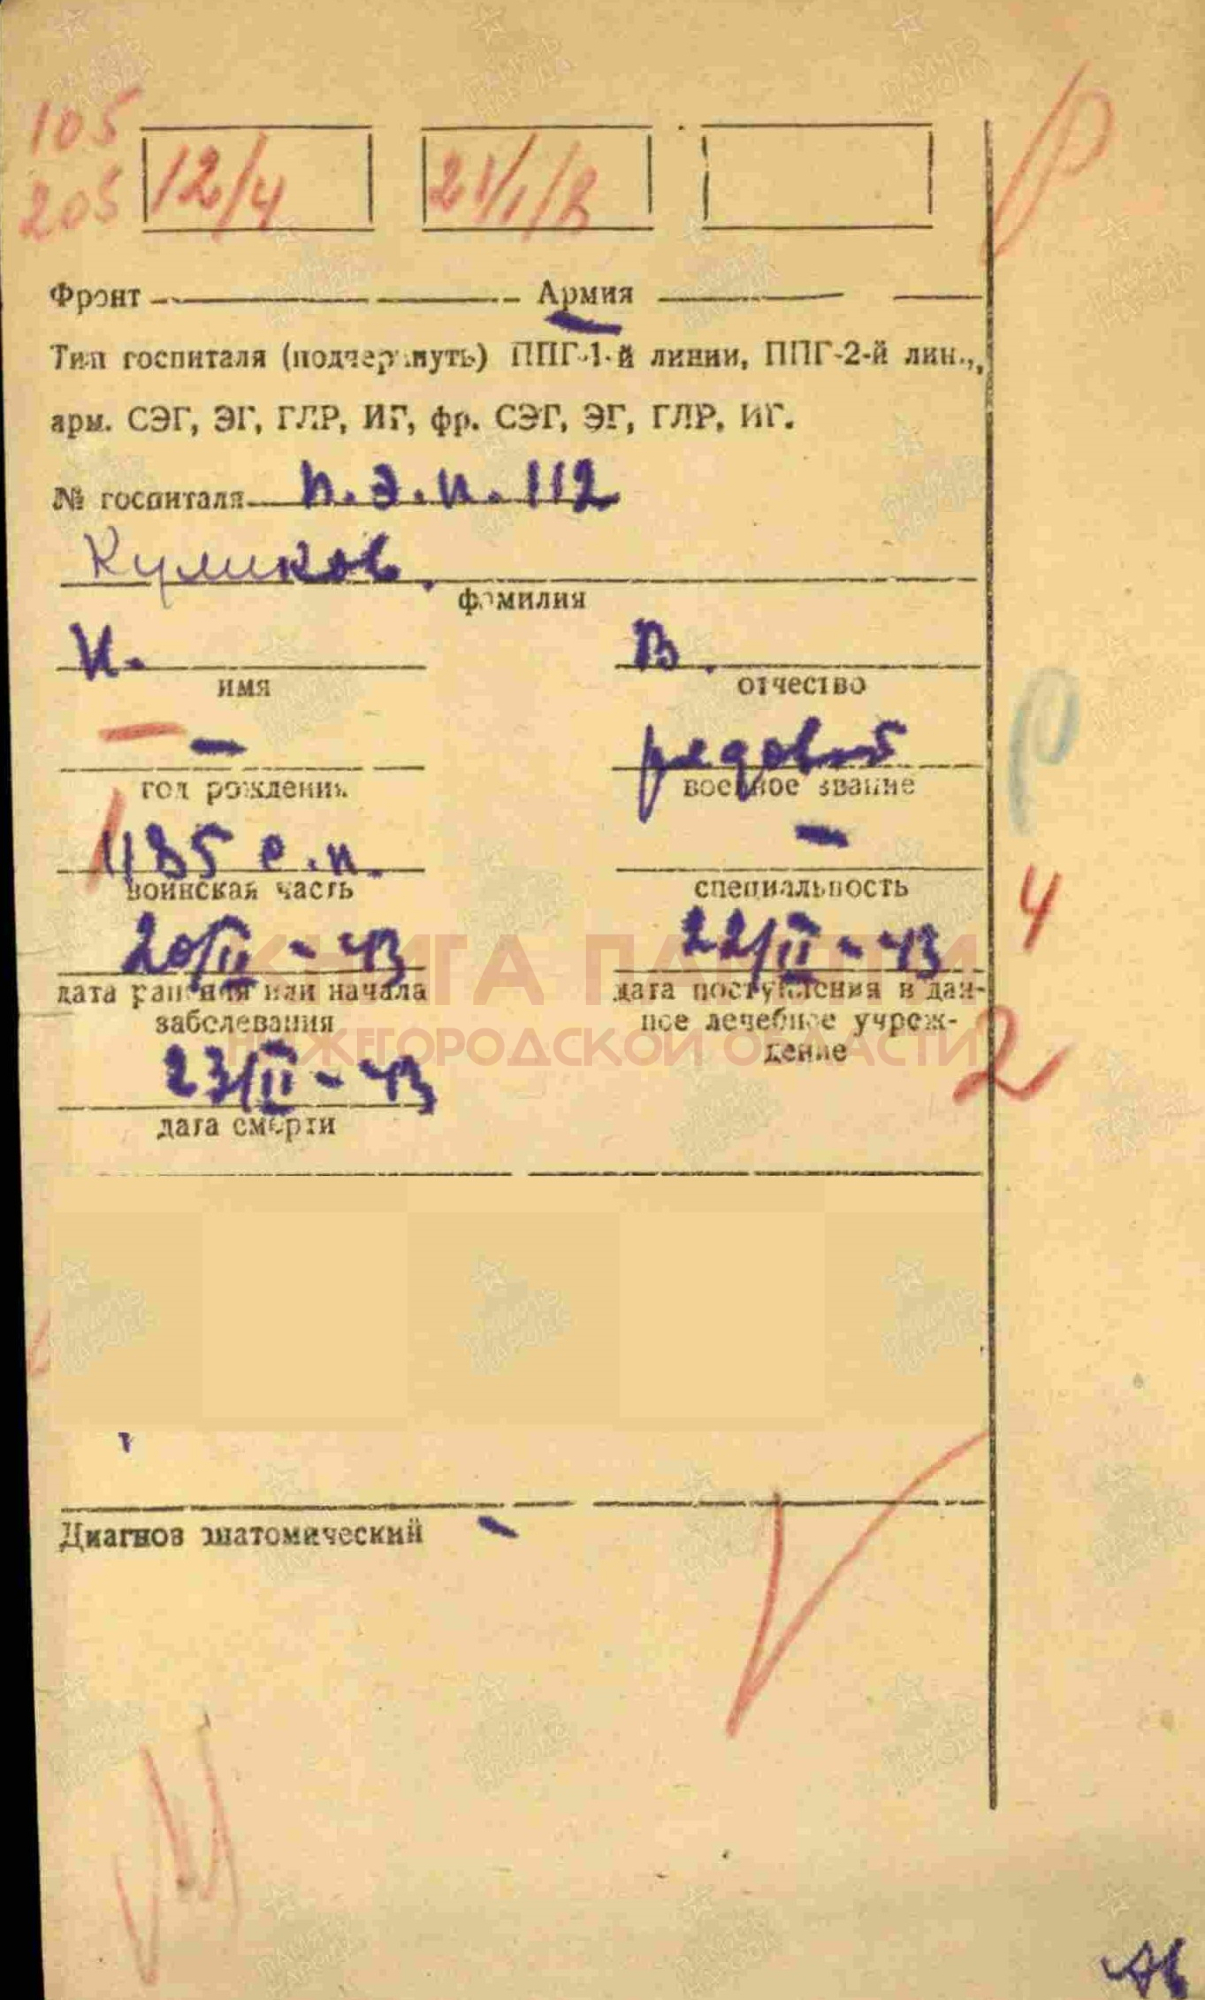 105
205
12/4
21/1/8
Фронт Армия
Тип госпиталя (подчеркнуть) ППГ-1-й линии, ППГ-2-й лин.,
арм. СЭГ, ЭГ, ГЛР, ИГ, фр. СЭГ, ЭГ, ГЛР, ИГ.
№ госпиталя п.э.п. 112
Куликов.
фамилия
И. В.
имя отчество
— рядовой
год рождения военное звание
1185 с.п. —
воинская часть специальность
4
20/II - 43 22/II - 43
КНИГА ПАМЯТИ
дата ранения или начала дата поступления в дан-
заболевания ное лечебное учреж-
НИЖЕГОРОДСКОЙ ОБЛАСТИ
дение
2
23/II - 43
дата смерти
Диагноз анатомический -